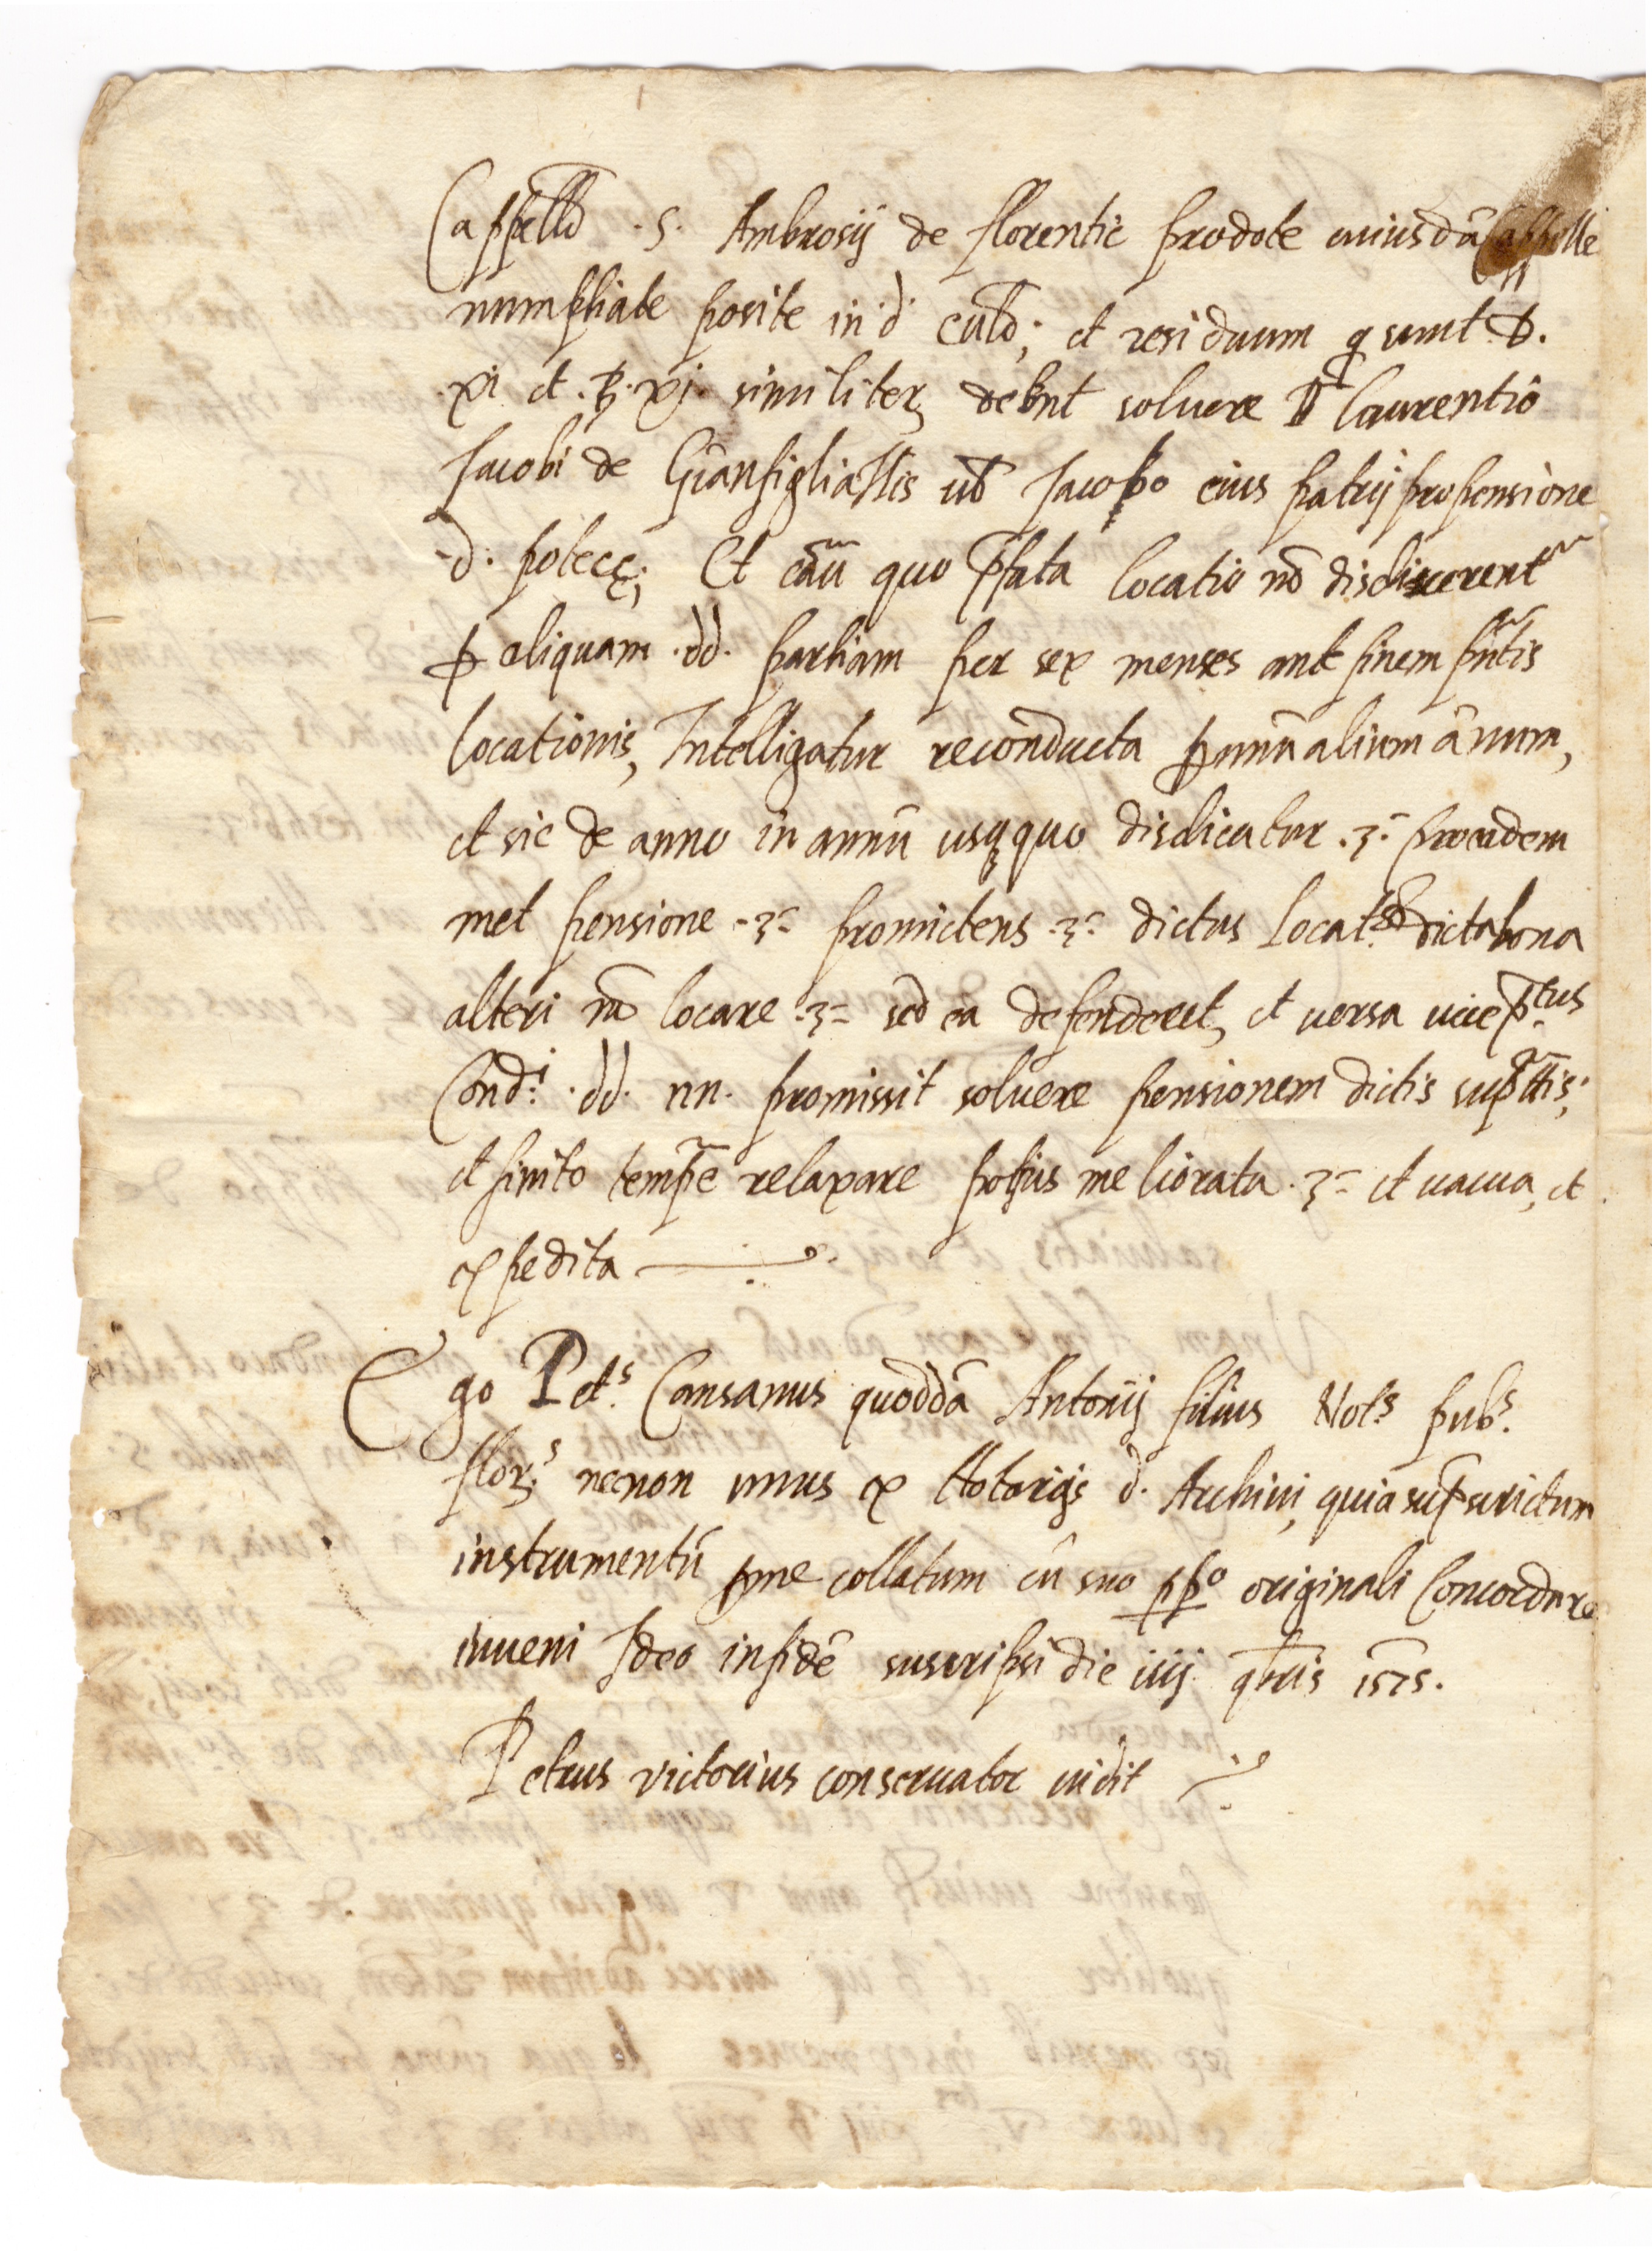 Cappellō .S. Ambrosij de florentie prodote cuiusdā Cappelle
numpliate posite in d. Ecclā; et residuum q̄ sunt
xi et .ꝑ. xj. similiter debn̄t soluere D. Laurentio
Jacobi de Gianfigliattis ut̄ Jacobo eius patrij propensione
.d. potecę; Et cāū quo p̄fata locatio nō disdicerent̃
ꝑ aliquam .dd. partiam per sex menses ante finem pn̄tis
locationis, Intelligatur reconducta ꝑ unū alium ānum,
et sic de anno in annū usq̨quo disdicatur .ꝫ. pro eadem
met pensione .ꝫ. promictens .ꝫ. dictus Locat.ʳ dicta bona
alteri nō locare .ꝫ. sed ea defenderet, et uersa uice p.tus
Cond.i .dd. nn. promissit soluere pensionem dictis supᵗtis;
et finito temp̄e relaxare potius meliorata .ꝫ. et uacua, et
expedita
Ego Pet.s Cansanus quoddā Antonij filius Not.s pub.s
flor.s necnon unus ex Notarijs d. Archiui, quia sup̄scrictum
instrumentū ꝑ me collatum cū suo pp.o originali Concordare
inueni Ideo in fidē suscripsi die iiij. q̄bris 1575.
Petrus victorius conseruator uidit